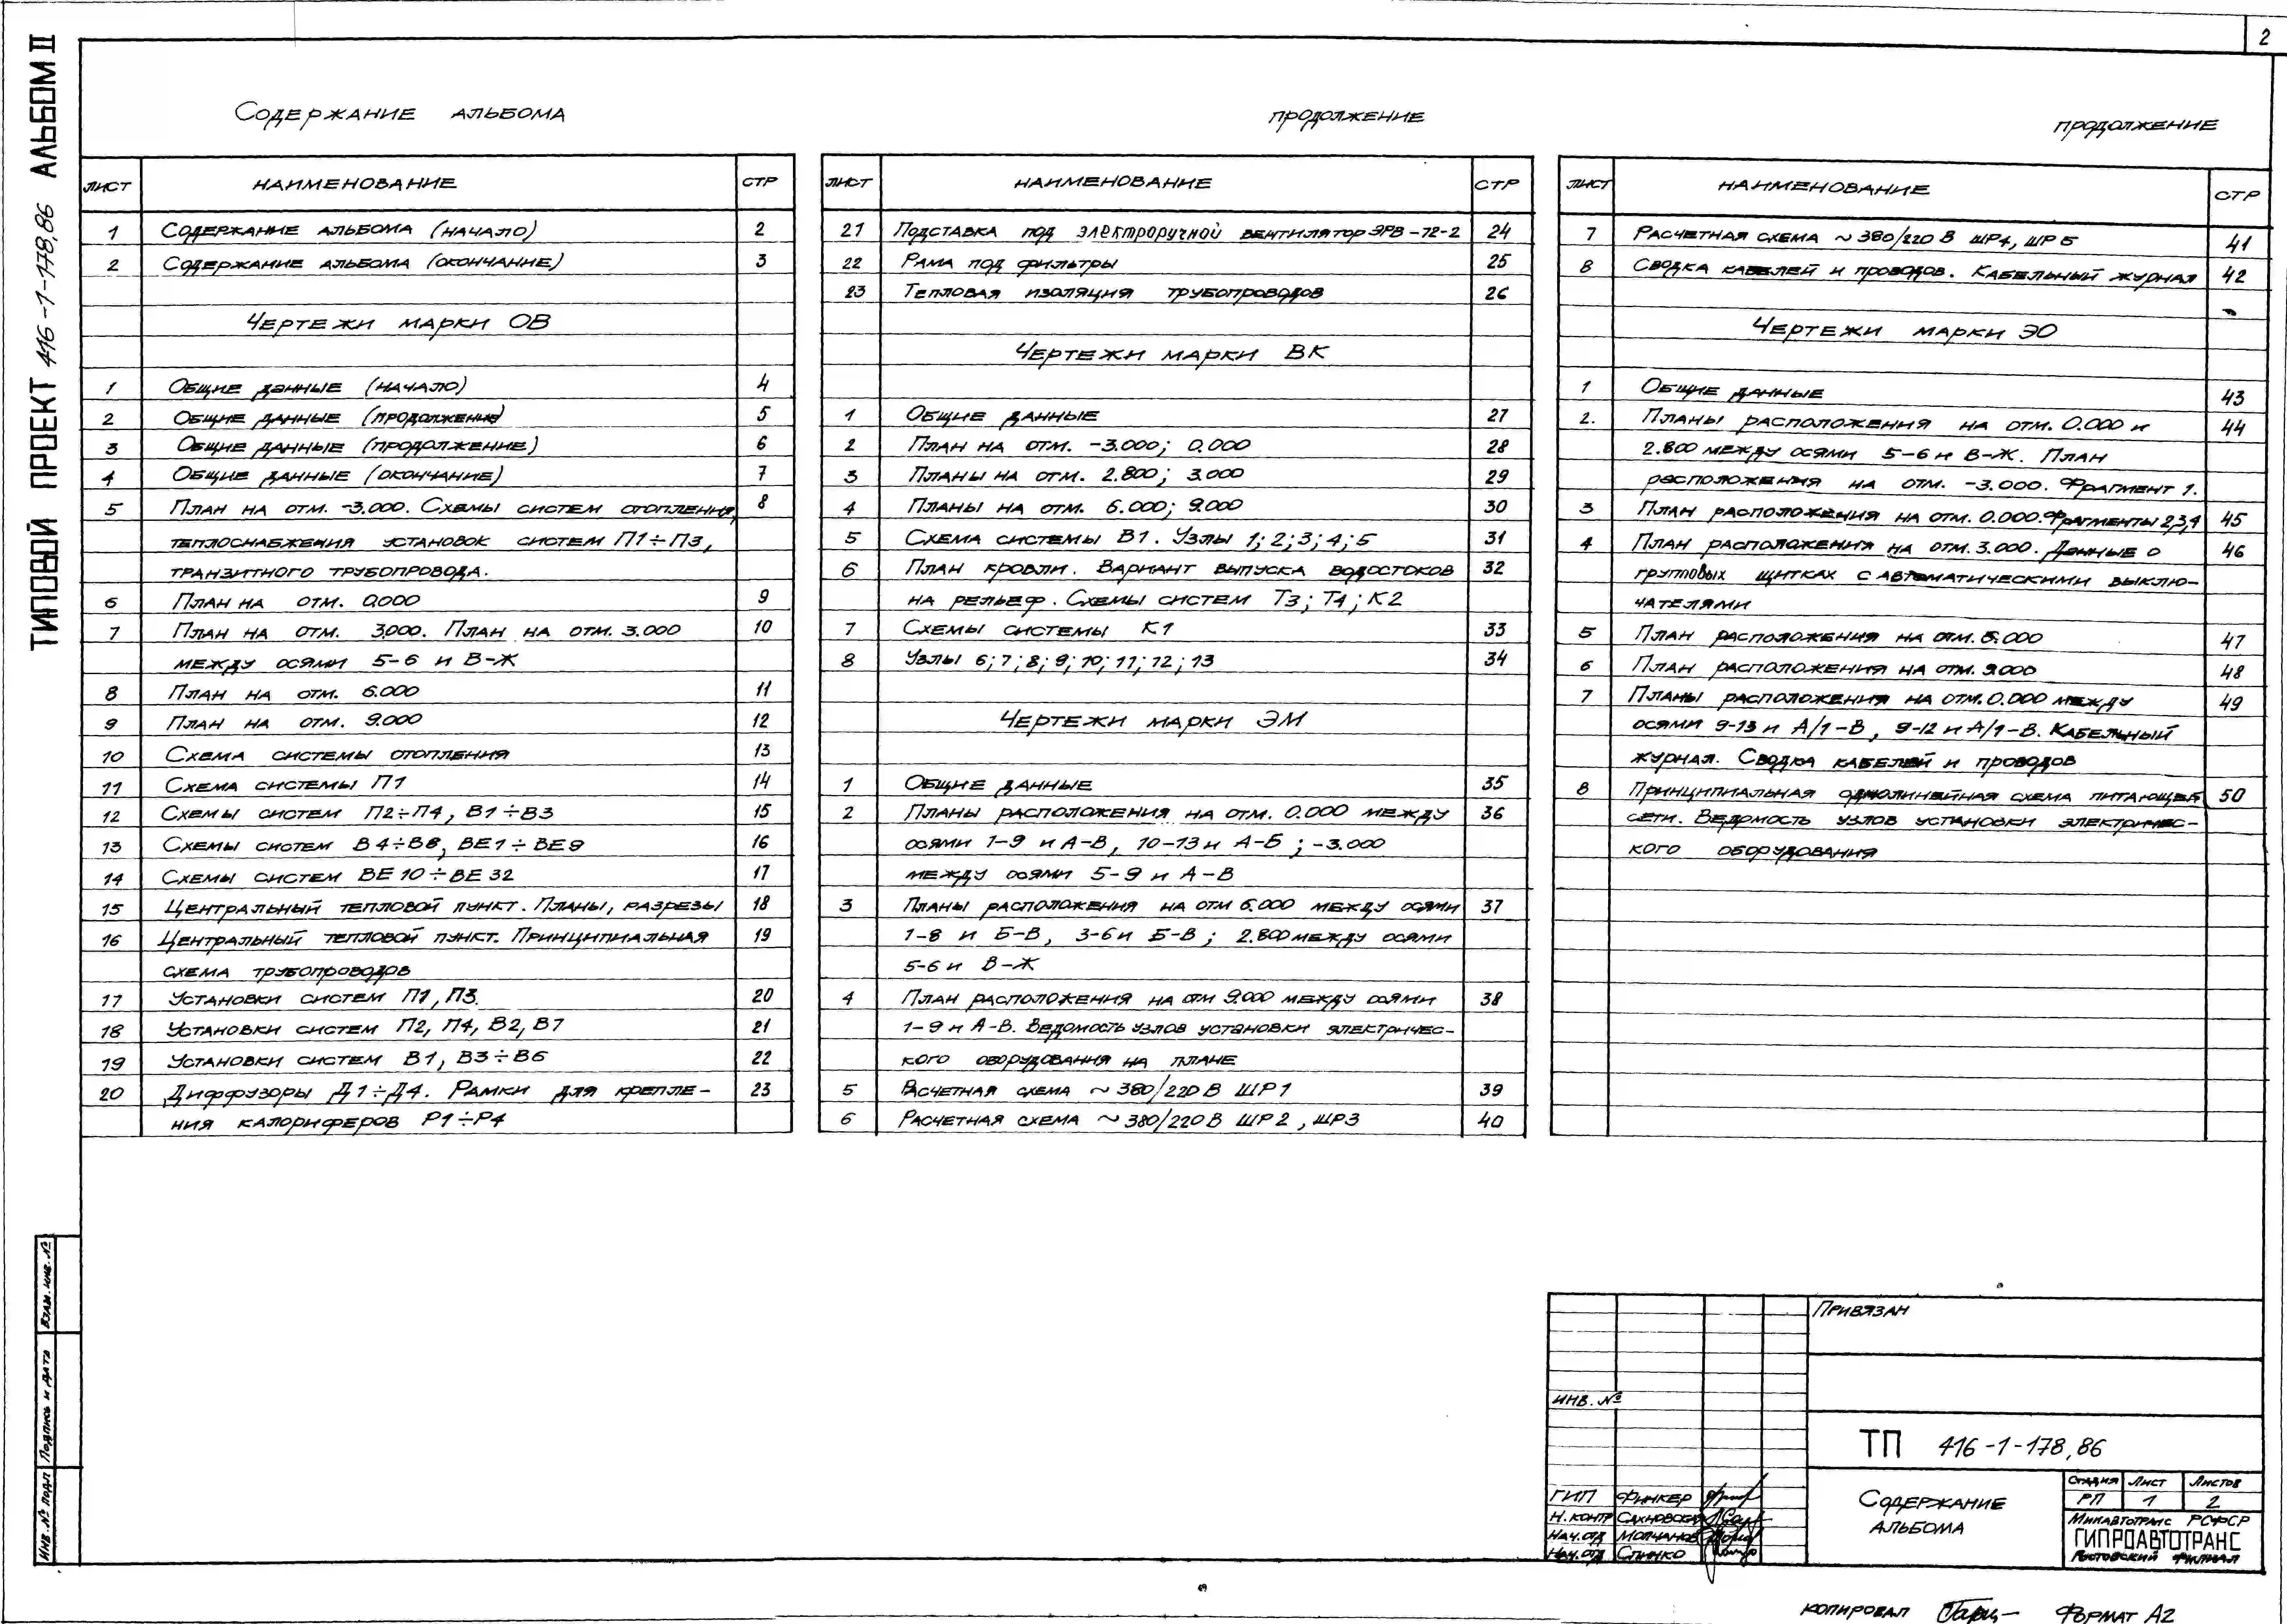 2
ТИПОВОЙ ПРОЕКТ 416-1-178,86 АЛЬБОМ II
Содержание альбома
ЛИСТ НАИМЕНОВАНИЕ СТР
1 Содержание альбома (начало) 2
2 Содержание альбома (окончание) 3
Чертежи марки ОВ
1 Общие данные (начало) 4
2 Общие данные (продолжение) 5
3 Общие данные (продолжение) 6
4 Общие данные (окончание) 7
5 План на отм. -3.000. Схемы систем отопления, 8
теплоснабжения установок систем П1÷П3,
транзитного трубопровода.
6 План на отм. 0.000 9
7 План на отм. 3.000. План на отм. 3.000 10
между осями 5-6 и В-Ж
8 План на отм. 6.000 11
9 План на отм. 9.000 12
10 Схема системы отопления 13
11 Схема системы П1 14
12 Схемы систем П2÷П4, В1÷В3 15
13 Схемы систем В4÷В8, ВЕ1÷ВЕ9 16
14 Схемы систем ВЕ10÷ВЕ32 17
15 Центральный тепловой пункт. Планы, разрезы 18
16 Центральный тепловой пункт. Принципиальная 19
схема трубопроводов
17 Установки систем П1, П3. 20
18 Установки систем П2, П4, В2, В7 21
19 Установки систем В1, В3÷В6 22
20 Диффузоры Д1÷Д4. Рамки для крепле- 23
ния калориферов Р1÷Р4
продолжение
ЛИСТ НАИМЕНОВАНИЕ СТР
21 Подставка под электроручной вентилятор ЭРВ-72-2 24
22 Рама под фильтры 25
23 Тепловая изоляция трубопроводов 26
Чертежи марки ВК
1 Общие данные 27
2 План на отм. -3.000; 0.000 28
3 Планы на отм. 2.800; 3.000 29
4 Планы на отм. 6.000; 9.000 30
5 Схема системы В1. Узлы 1; 2; 3; 4; 5 31
6 План кровли. Вариант выпуска водостоков 32
на рельеф. Схемы систем Т3; Т4; К2
7 Схемы системы К1 33
8 Узлы 6; 7; 8; 9; 10; 11; 12; 13 34
Чертежи марки ЭМ
1 Общие данные 35
2 Планы расположения на отм. 0.000 между 36
осями 1-9 и А-В, 10-13 и А-Б; -3.000
между осями 5-9 и А-В
3 Планы расположения на отм 6.000 между осями 37
1-8 и Б-В, 3-6 и Б-В; 2.800 между осями
5-6 и В-Ж
4 План расположения на отм 9.000 между осями 38
1-9 и А-В. Ведомость узлов установки электричес-
кого оборудования на плане
5 Расчетная схема ~380/220 В ШР1 39
6 Расчетная схема ~380/220 В ШР2, ШР3 40
продолжение
ЛИСТ НАИМЕНОВАНИЕ СТР
7 Расчетная схема ~380/220 В ШР4, ШР5 41
8 Сводка кабелей и проводов. Кабельный журнал 42
Чертежи марки ЭО
1 Общие данные 43
2. Планы расположения на отм. 0.000 и 44
2.800 между осями 5-6 и В-Ж. План
расположения на отм. -3.000. Фрагмент 1.
3 План расположения на отм. 0.000. Фрагменты 2,3,4 45
4 План расположения на отм. 3.000. Данные о 46
групповых щитках с автоматическими выклю-
чателями
5 План расположения на отм. 6.000 47
6 План расположения на отм. 9.000 48
7 Планы расположения на отм. 0.000 между 49
осями 9-13 и А/1-В, 9-12 и А/1-В. Кабельный
журнал. Сводка кабелей и проводов
8 Принципиальная однолинейная схема питающей 50
сети. Ведомость узлов установки электричес-
кого оборудования
Взам. инв. №
Подпись и дата
Инв. № подл
Привязан
Инв. №
ТП 416-1-178,86
ГИП Финкер
Н. контр Сахновская
Нач. отд Молчанов
Нач. отд Спинко
Содержание
альбома
Стадия Лист Листов
РП 1 2
Минавтотранс РСФСР
ГИПРОАВТОТРАНС
Ростовский филиал
копировал Формат А2